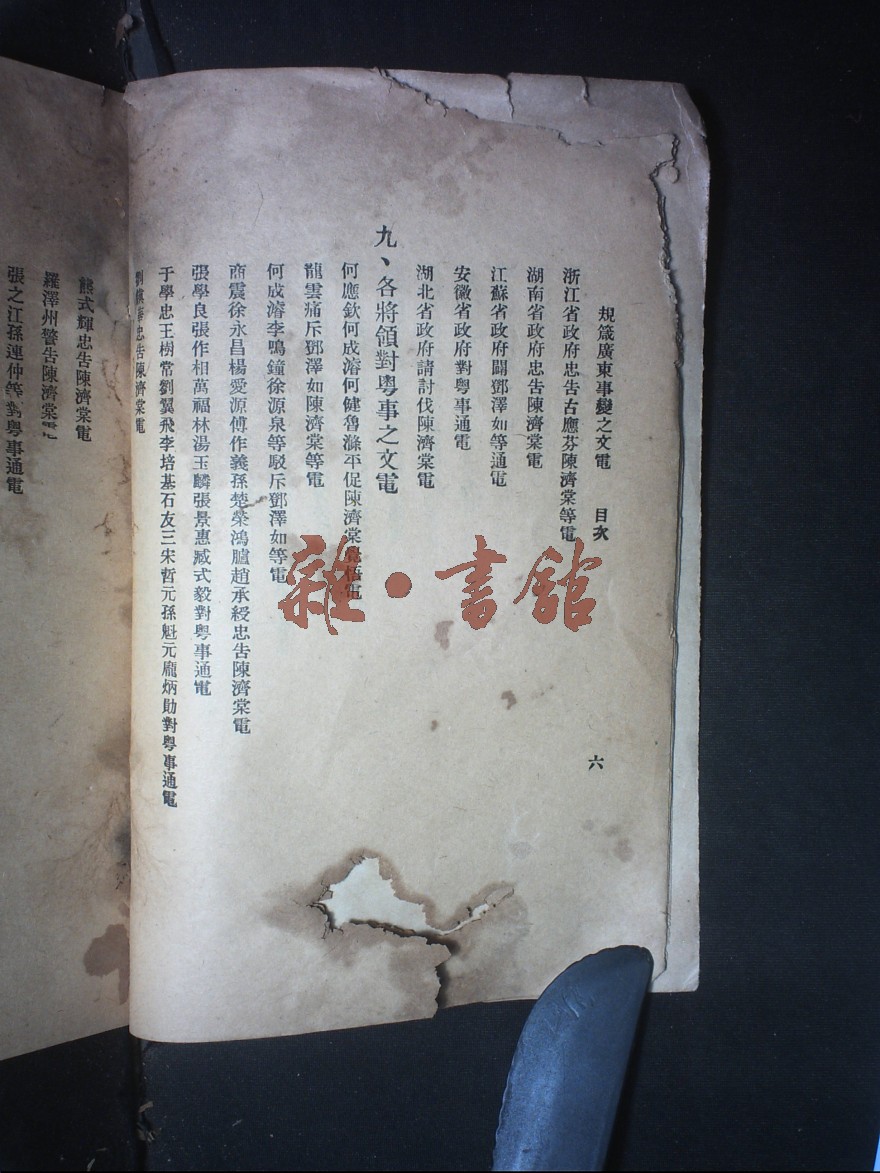 規箴廣東事變之文電 目次 六
浙江省政府忠告古應芬陳濟棠等電
湖南省政府忠告陳濟棠電
江蘇省政府闢鄧澤如等通電
安徽省政府對粵事通電
湖北省政府請討伐陳濟棠電
九、各將領對粵事之文電
何應欽何成濬何健魯滌平促陳濟棠覺悟電
龍雲痛斥鄧澤如陳濟棠等電
何成濬李鳴鐘徐源泉等駁斥鄧澤如等電
商震徐永昌楊愛源傅作義孫楚榮鴻臚趙承綬忠告陳濟棠電
張學良張作相萬福林湯玉麟張景惠臧式毅對粵事通電
于學忠王樹常劉翼飛李培基石友三宋哲元孫魁元龐炳勛對粵事通電
劉忠告陳濟棠電
熊式輝忠告陳濟棠電
羅澤州警告陳濟棠電
張之江孫連仲等對粵事通電
雜·書館